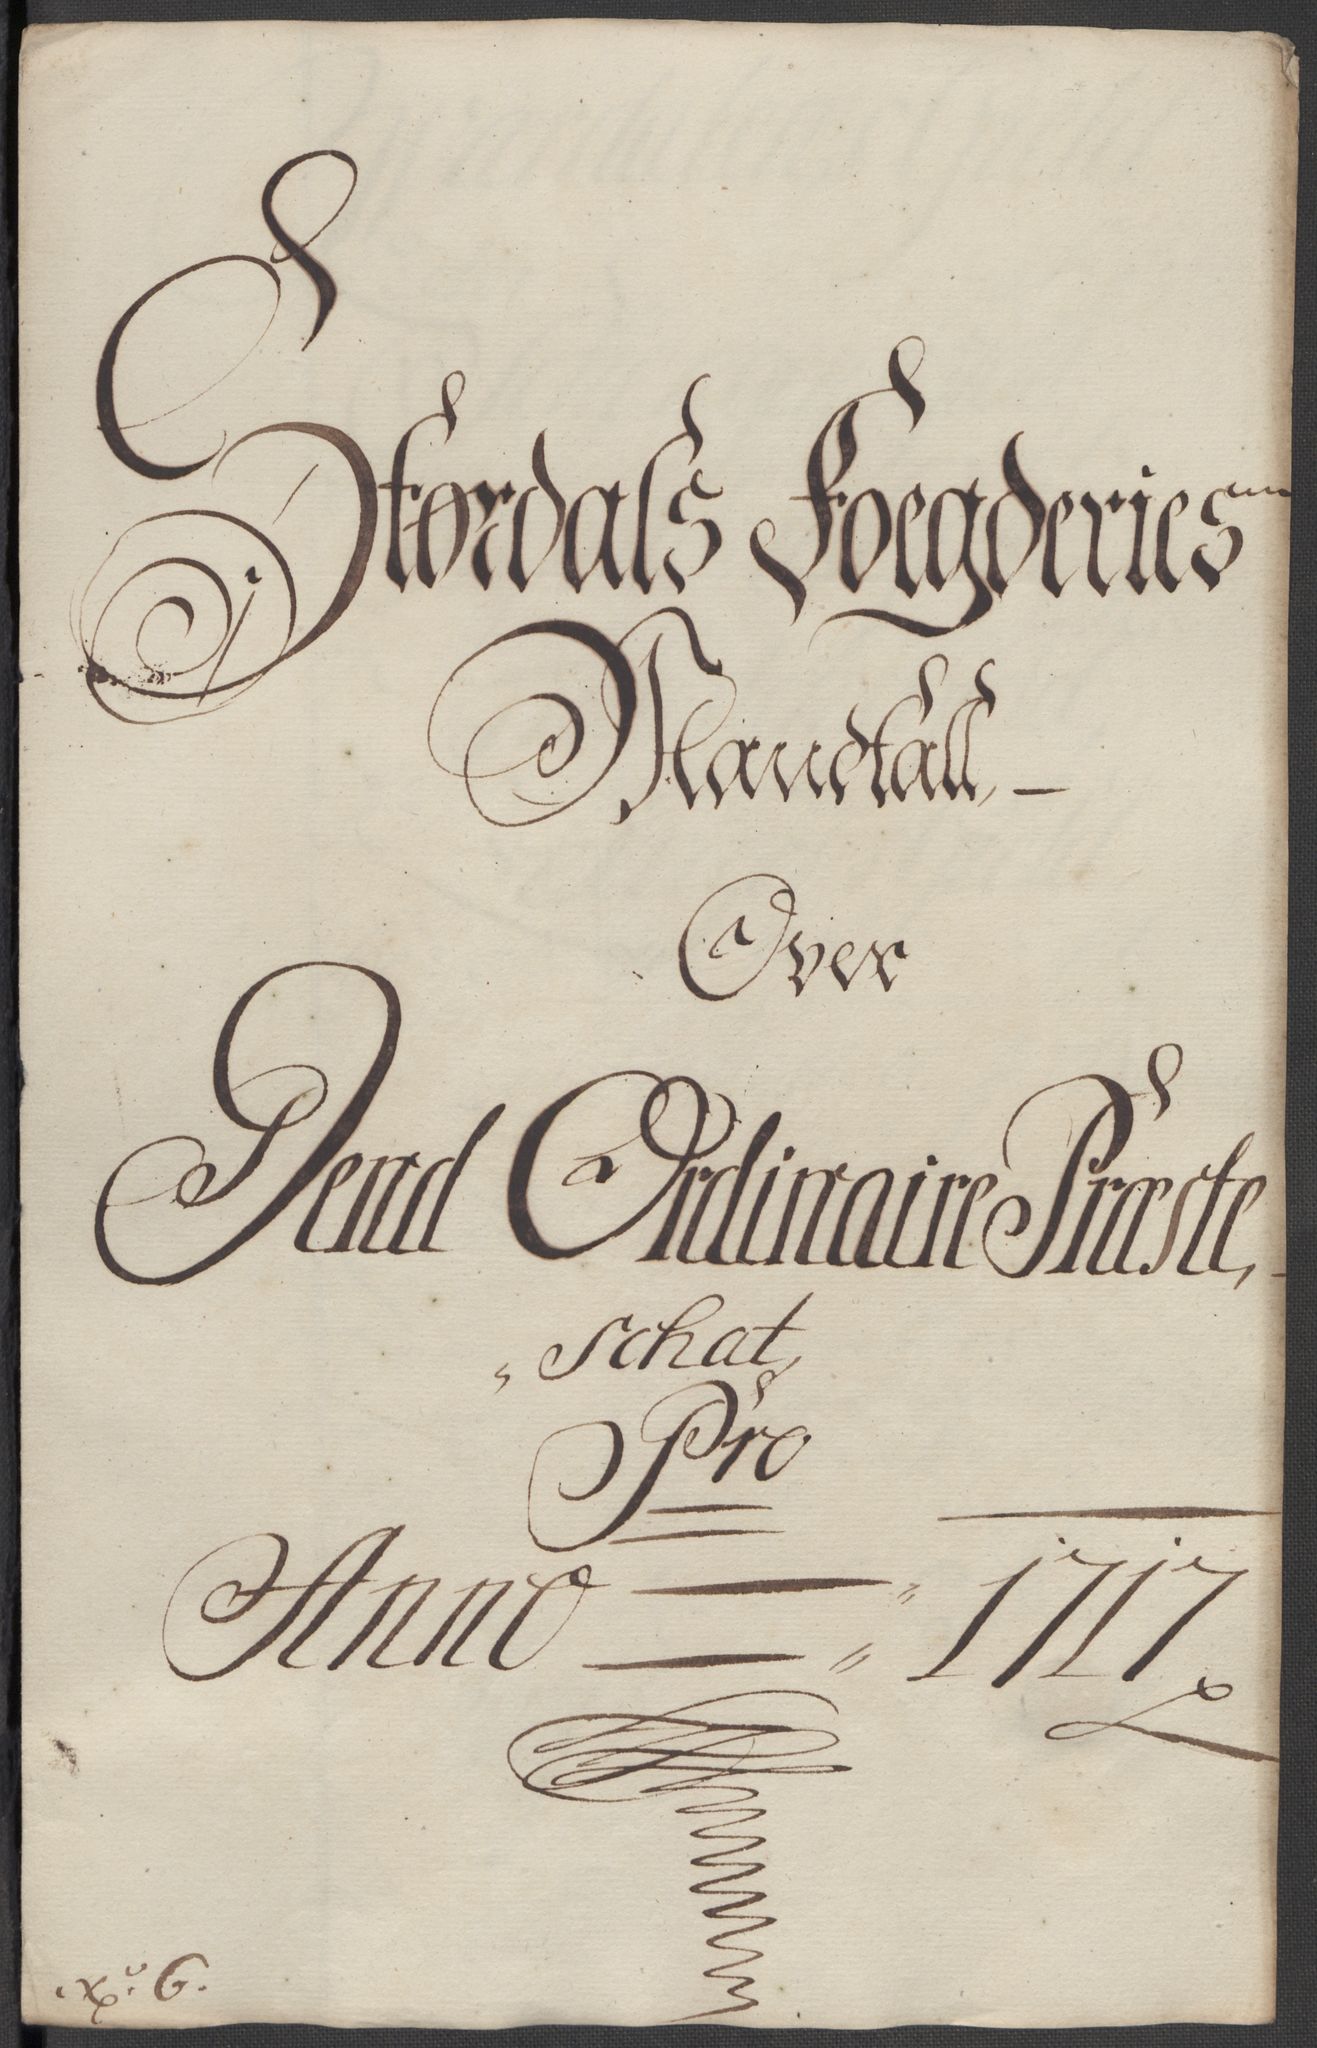 Størdals Foegderies
Mandtall,
Over
Dend Ordinaire Præste,
schat,
Pro
Anno 1717
No. 6.